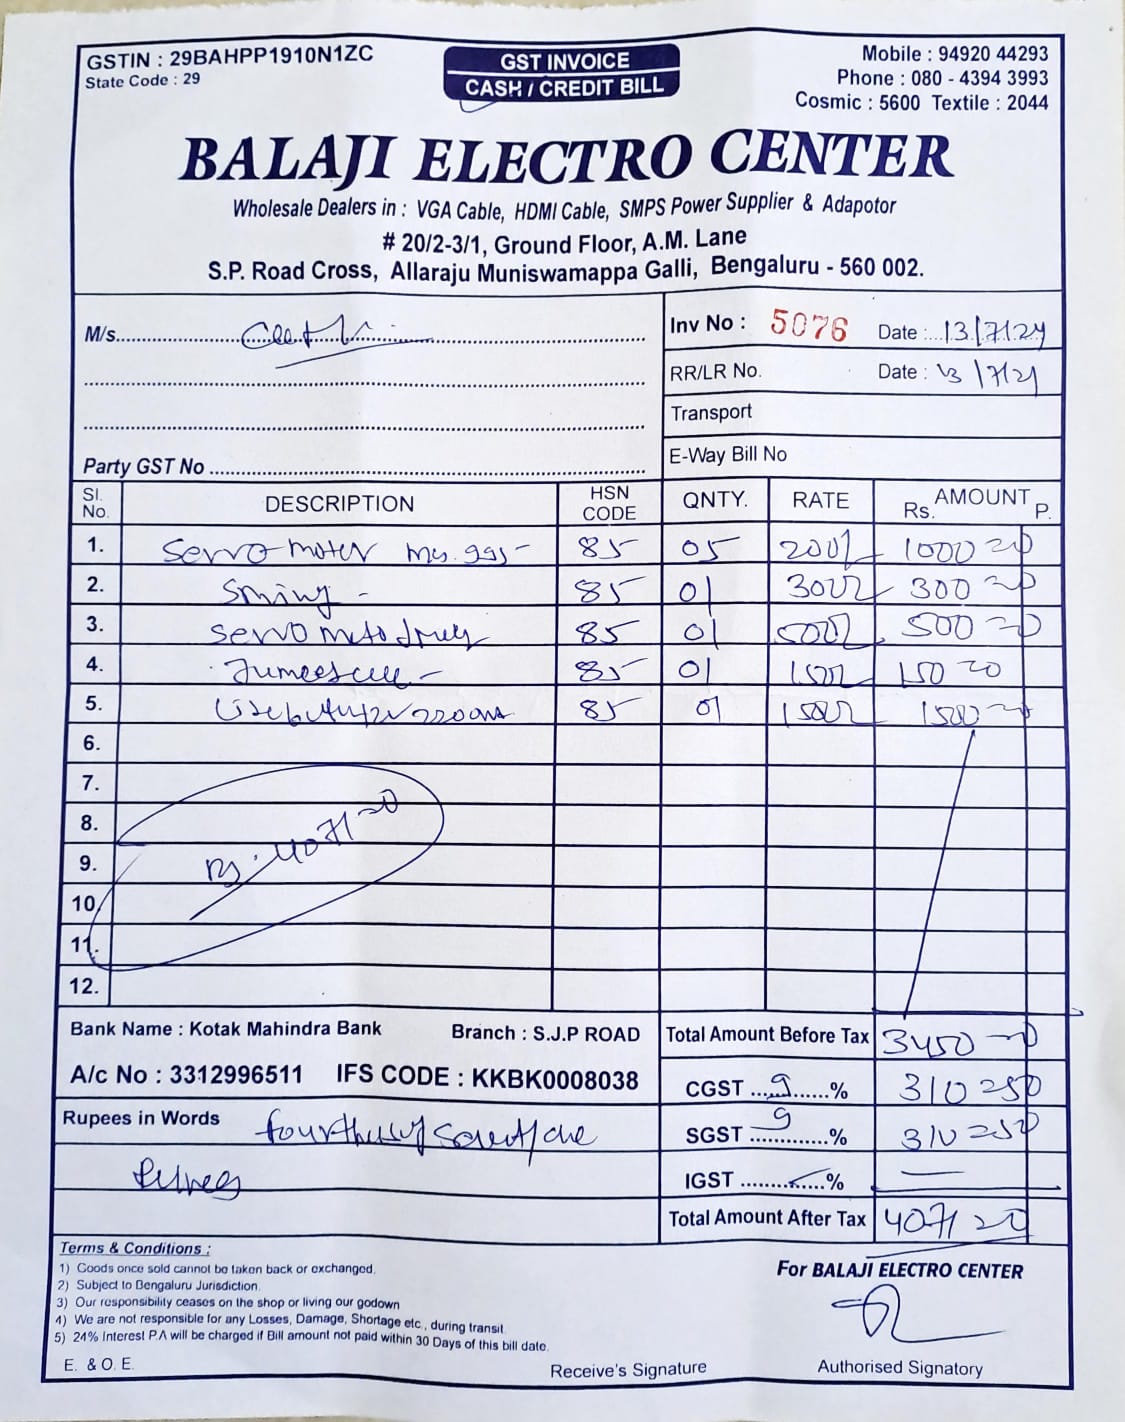 GSTIN : 29BAHPP1910N1ZC
State Code : 29
GST INVOICE
CASH / CREDIT BILL
Mobile : 94920 44293
Phone : 080 - 4394 3993
Cosmic : 5600 Textile : 2044
BALAJI ELECTRO CENTER
Wholesale Dealers in : VGA Cable, HDMI Cable, SMPS Power Supplier & Adapotor
# 20/2-3/1, Ground Floor, A.M. Lane
S.P. Road Cross, Allaraju Muniswamappa Galli, Bengaluru - 560 002.
M/s
Inv No : 5076 Date : 13/7/24
RR/LR No. Date : 13/7/24
Transport
Party GST No
E-Way Bill No
Sl. No. DESCRIPTION HSN CODE QNTY. RATE AMOUNT Rs. P.
1. Servo motor 85 05 200/- 1000
2. 85 01 300 300
3. Servo 85 01 500 500
4. 85 01 150 150
5. 85 01 1500 1500
6.
7.
8.
9. Rs. 4071
10.
11.
12.
Bank Name : Kotak Mahindra Bank Branch : S.J.P ROAD
Total Amount Before Tax 3450
A/c No : 3312996511 IFS CODE : KKBK0008038
CGST 9 % 310 50
Rupees in Words
SGST 9 % 310 50
IGST %
Total Amount After Tax 4071
Terms & Conditions :
1) Goods once sold cannot be taken back or exchanged.
2) Subject to Bengaluru Jurisdiction.
3) Our responsibility ceases on the shop or living our godown
4) We are not responsible for any Losses, Damage, Shortage etc., during transit.
5) 24% Interest P.A will be charged if Bill amount not paid within 30 Days of this bill date.
E. & O. E.
For BALAJI ELECTRO CENTER
Receive's Signature
Authorised Signatory